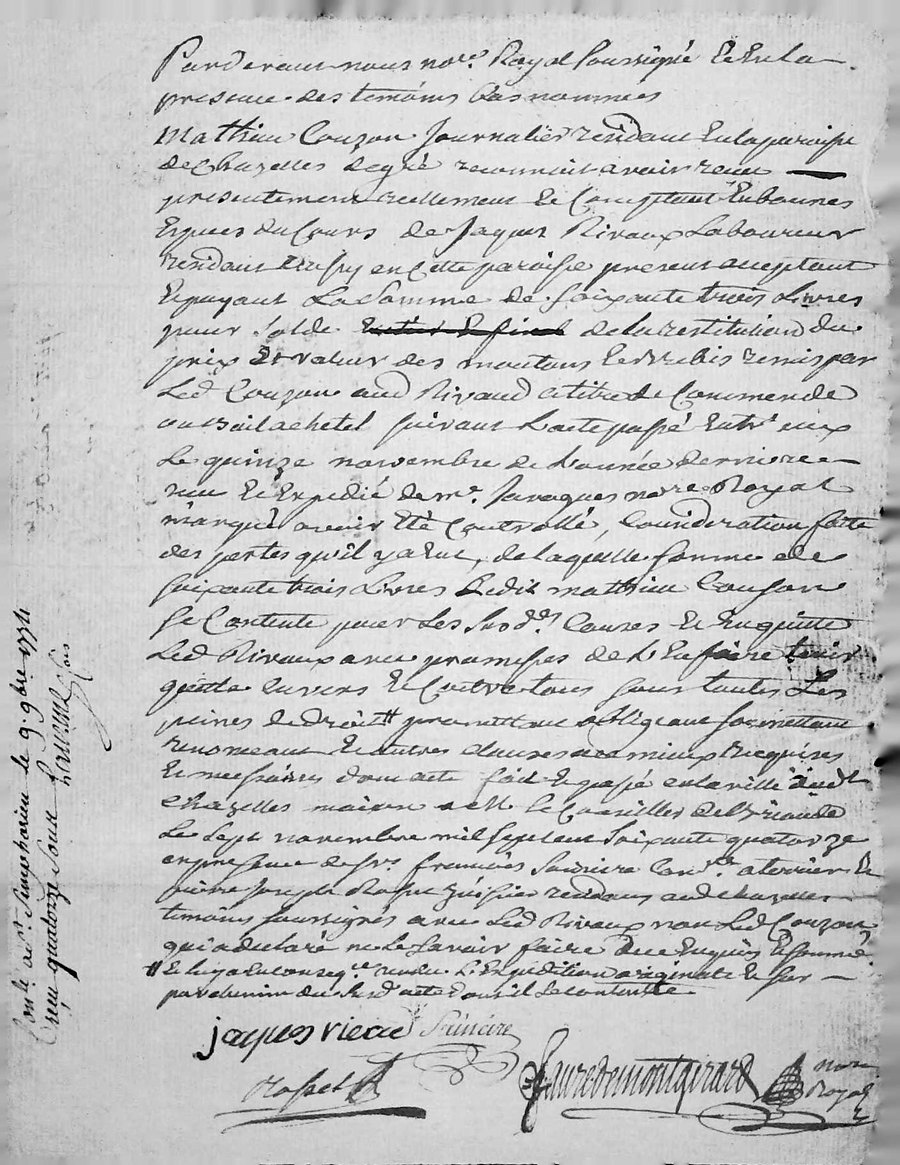 Pardevant nous no.re Royal soussigné Et En la
presence des temoins bas nommes
Mathieu Couzon Journalier residant En la paroisse
de Chazelles de gré reconnoit avoir receu
presentement reellement Et Comptant En bonnes
Especes du Cours de Jaques Rivaux Laboureur
residant en Cette paroisse present acceptant
Et payant La Somme de Soixante trois Livres
pour Solde de la restitution du
prix Et valeur des moutons Et Brebis remis par
Led Couzon aud Rivaud a titre de Commende
ou Bail a chetel suivant L'acte passé Entr' eux
Le quinze novembre de L'année derniere
receu Et Expedié de m.e Javogues no.re Royal
manqué avoir Eté Controllé, Consideration faitte
des pertes qu'il y a Eut, de laquelle somme de
soixante trois Livres Ledit mathieu Couson
se Contente pour Les Susd.es Causes Et En quitte
Led Rivaux avec promesses de L'En faire tenir
quitte Envers Et Contre tous sous toutes Les
peines de droit # promettant obligeant soumettant
renonceant Et autres clauses au mieux requises
Et necessaires dont acte fait Et passé en la ville dud
Chazelles maison
Le Sept novembre mil sept cent Soixante quatorze
en presence de Sr. François
pierre Joseph residans aud Chazelles
temoins soussignés avec Led Rivaux non Led Couzon
qui a declaré ne Le Savoir faire de ce Enquis Et sommé
# Et luy a En conseq.ce rendu L'Expedition originale Et sur
parchemin du Susd' acte dont il Se contente
jaques rieau Princire
Rosset
Faure de montgirard no.re
Royal
Con.lé a S.t Simphorien le 9. 9bre 1774
reçu quatorze sous